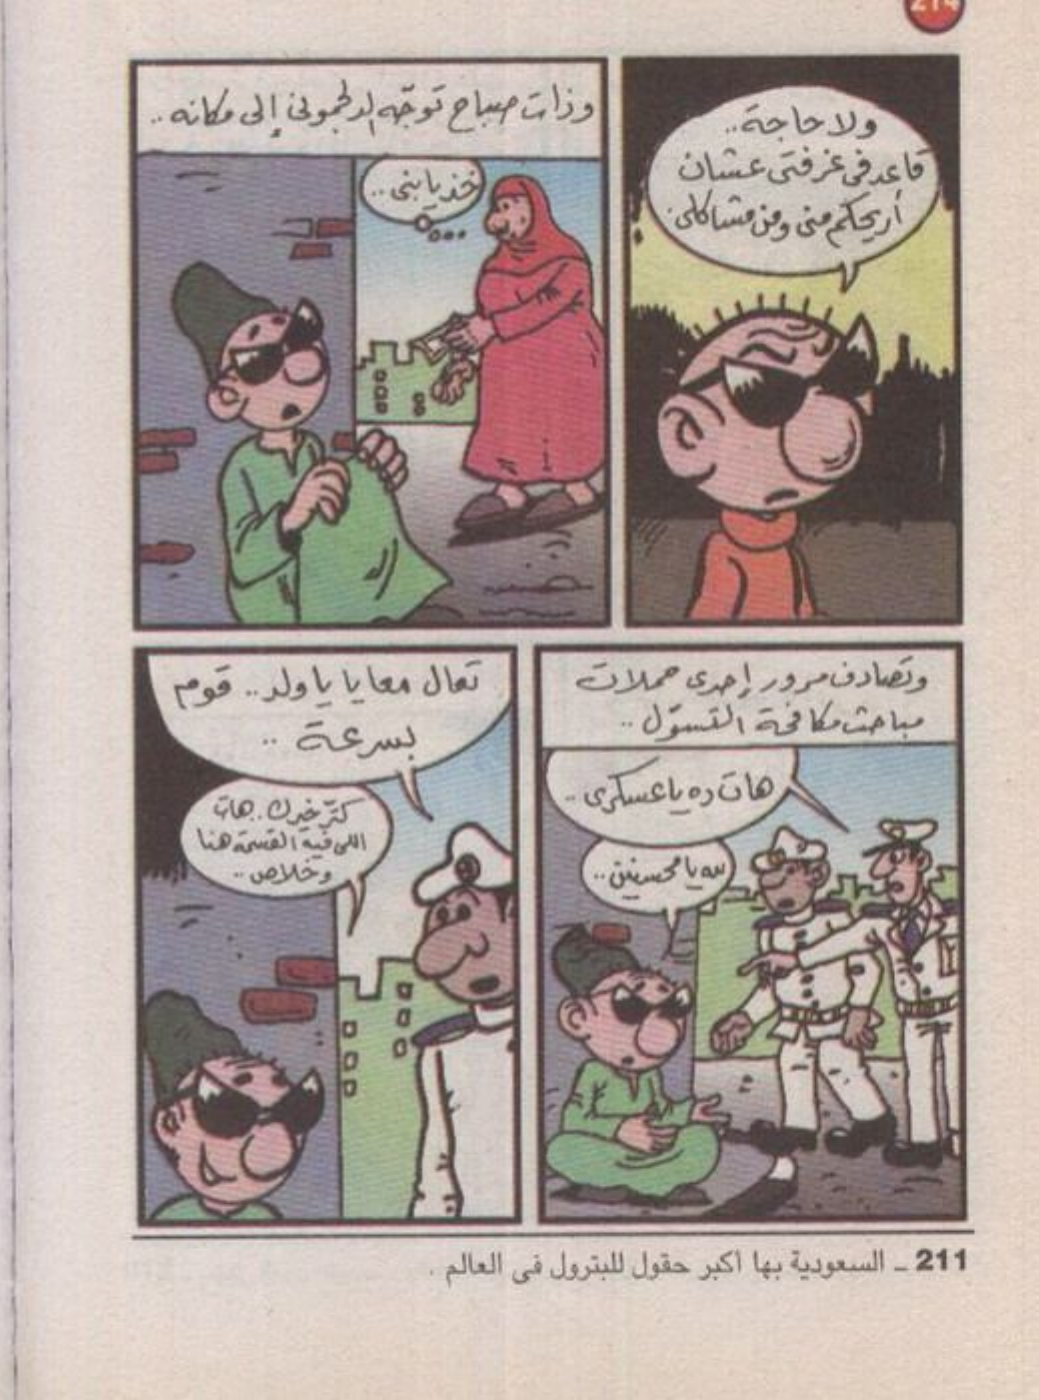 214
ولا حاجة..
قاعد فى غرفتى عشان
أريحكم منى ومن مشاكلى.
وذات صباح توجّه الدلجمونى إلى مكانه..
خذ يا بنى..
وتصادف مرور إحدى حملات
مباحث مكافحة التسوّل..
هات ده يا عسكرى..
لله يا محسنين..
تعال معايا يا ولد.. قوم
بسرعة..
كتّر خيرك. هات
اللى فيه القسمة هنا
وخلاص..
211 ـ السعودية بها أكبر حقول للبترول فى العالم .